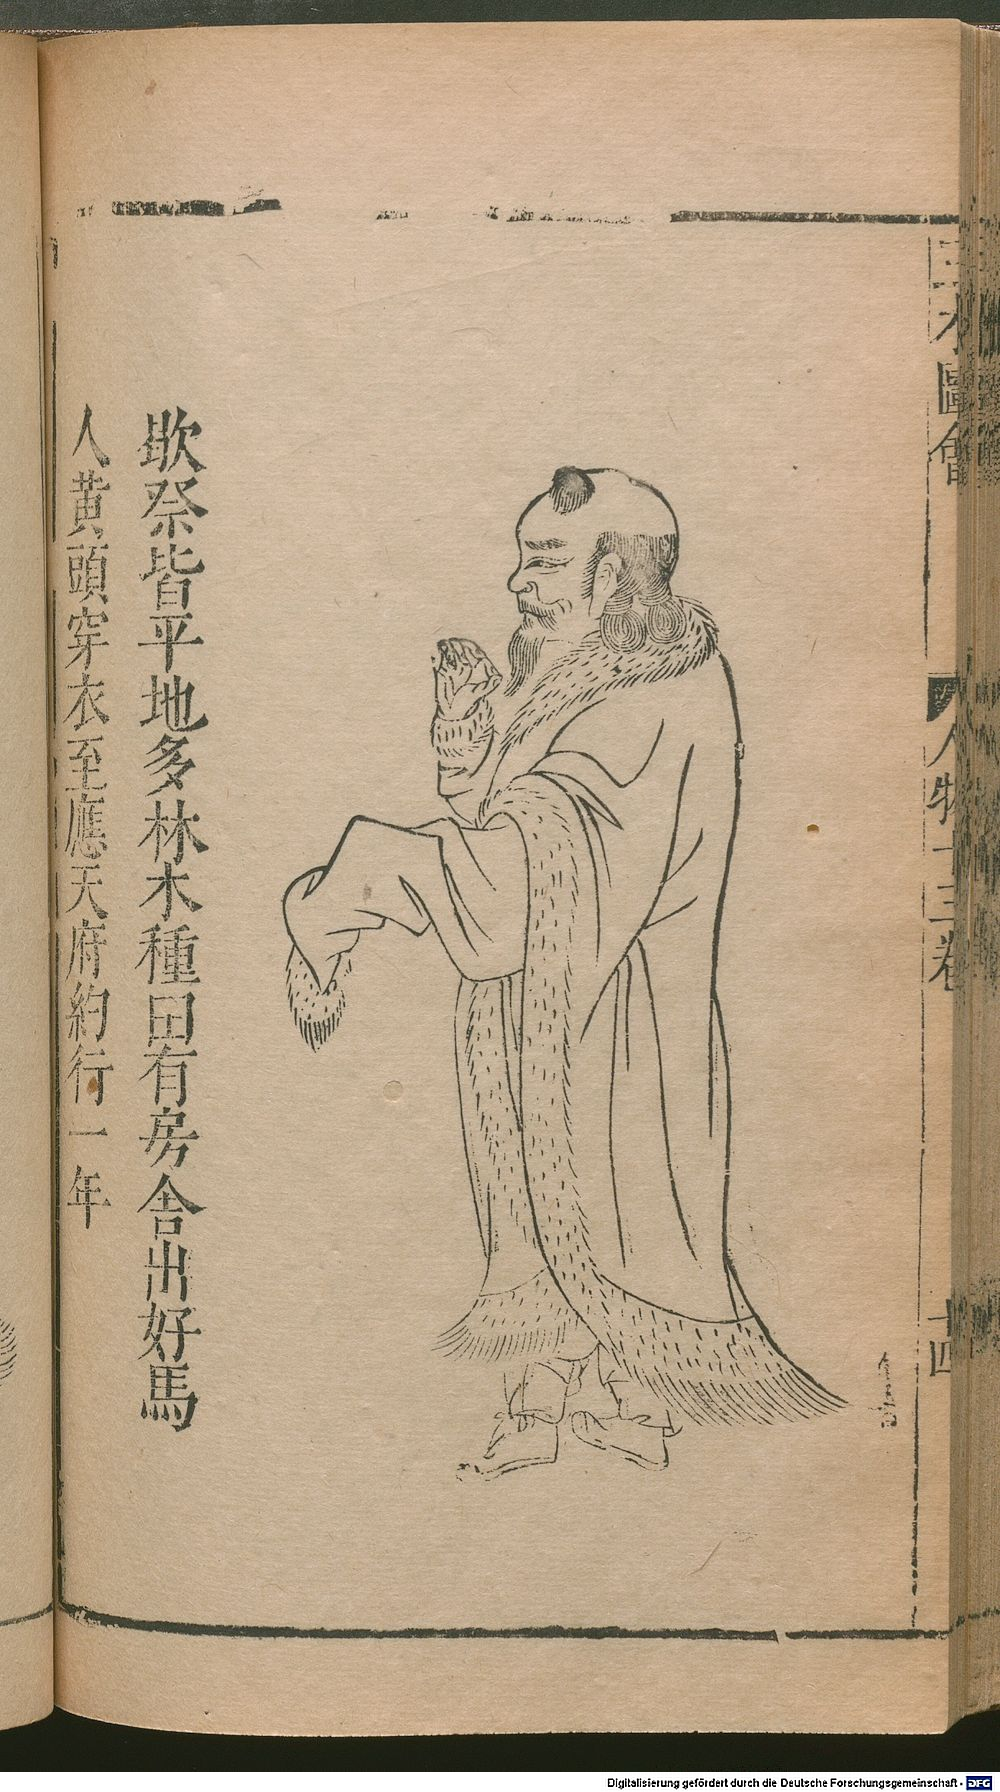 三才圖會
人物十三卷
十四
歇祭皆平地多林木種田有房舍出好馬
人黄頭穿衣至應天府約行一年
Digitalisierung gefördert durch die Deutsche Forschungsgemeinschaft - DFG